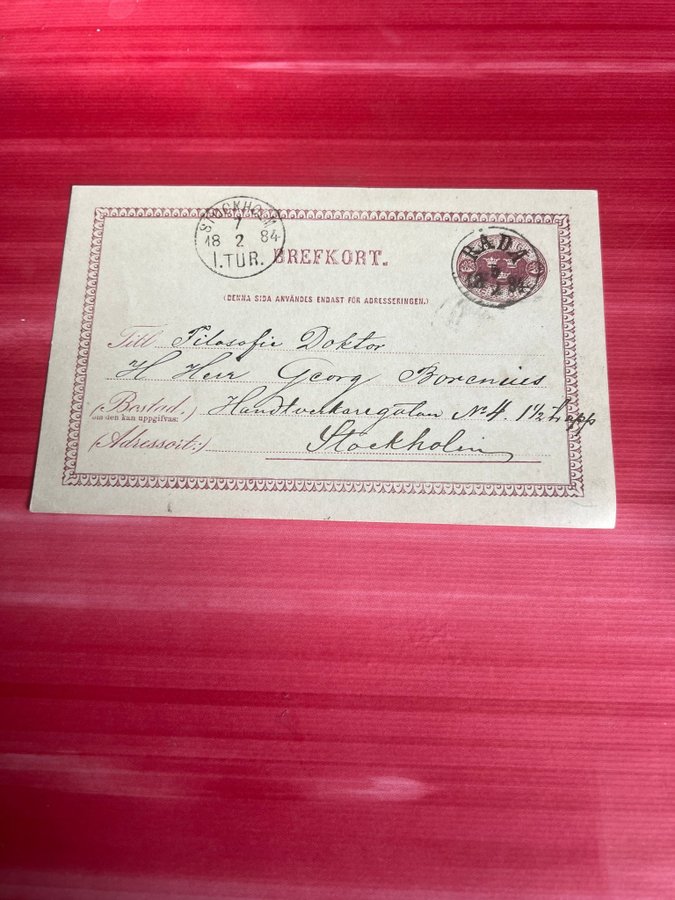 STOCKHOLM
7
18 2 84
1. TUR.
BREFKORT.
RÅDA
18 84
(DENNA SIDA ANVÄNDES ENDAST FÖR ADRESSERINGEN.)
Till Filosofie Doktor
H Herr Georg Borenius
(Bostad, Handtverkaregatan No 4. 1½ tr app
om den kan uppgifvas:)
(Adressort:) Stockholm